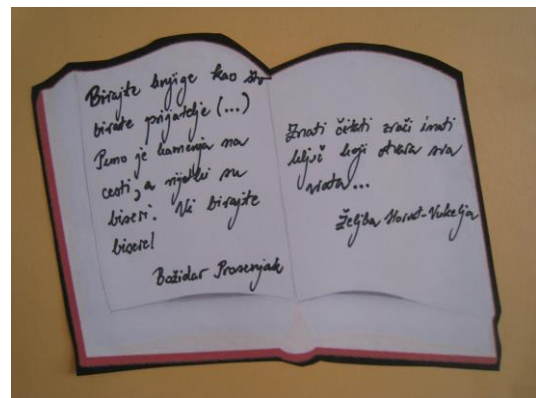 Birajte knjige kao što
birate prijatelje (...)
Puno je kamenja na
cesti, a rijetki su
biseri. Vi birajte
bisere!
Božidar Prosenjak
Znati čitati znači imati
ključ koji otvara sva
vrata...
Željka Horvat-Vukelja